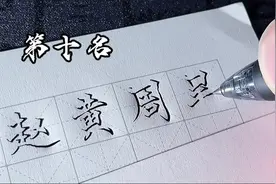 第十名
赵黄周吕